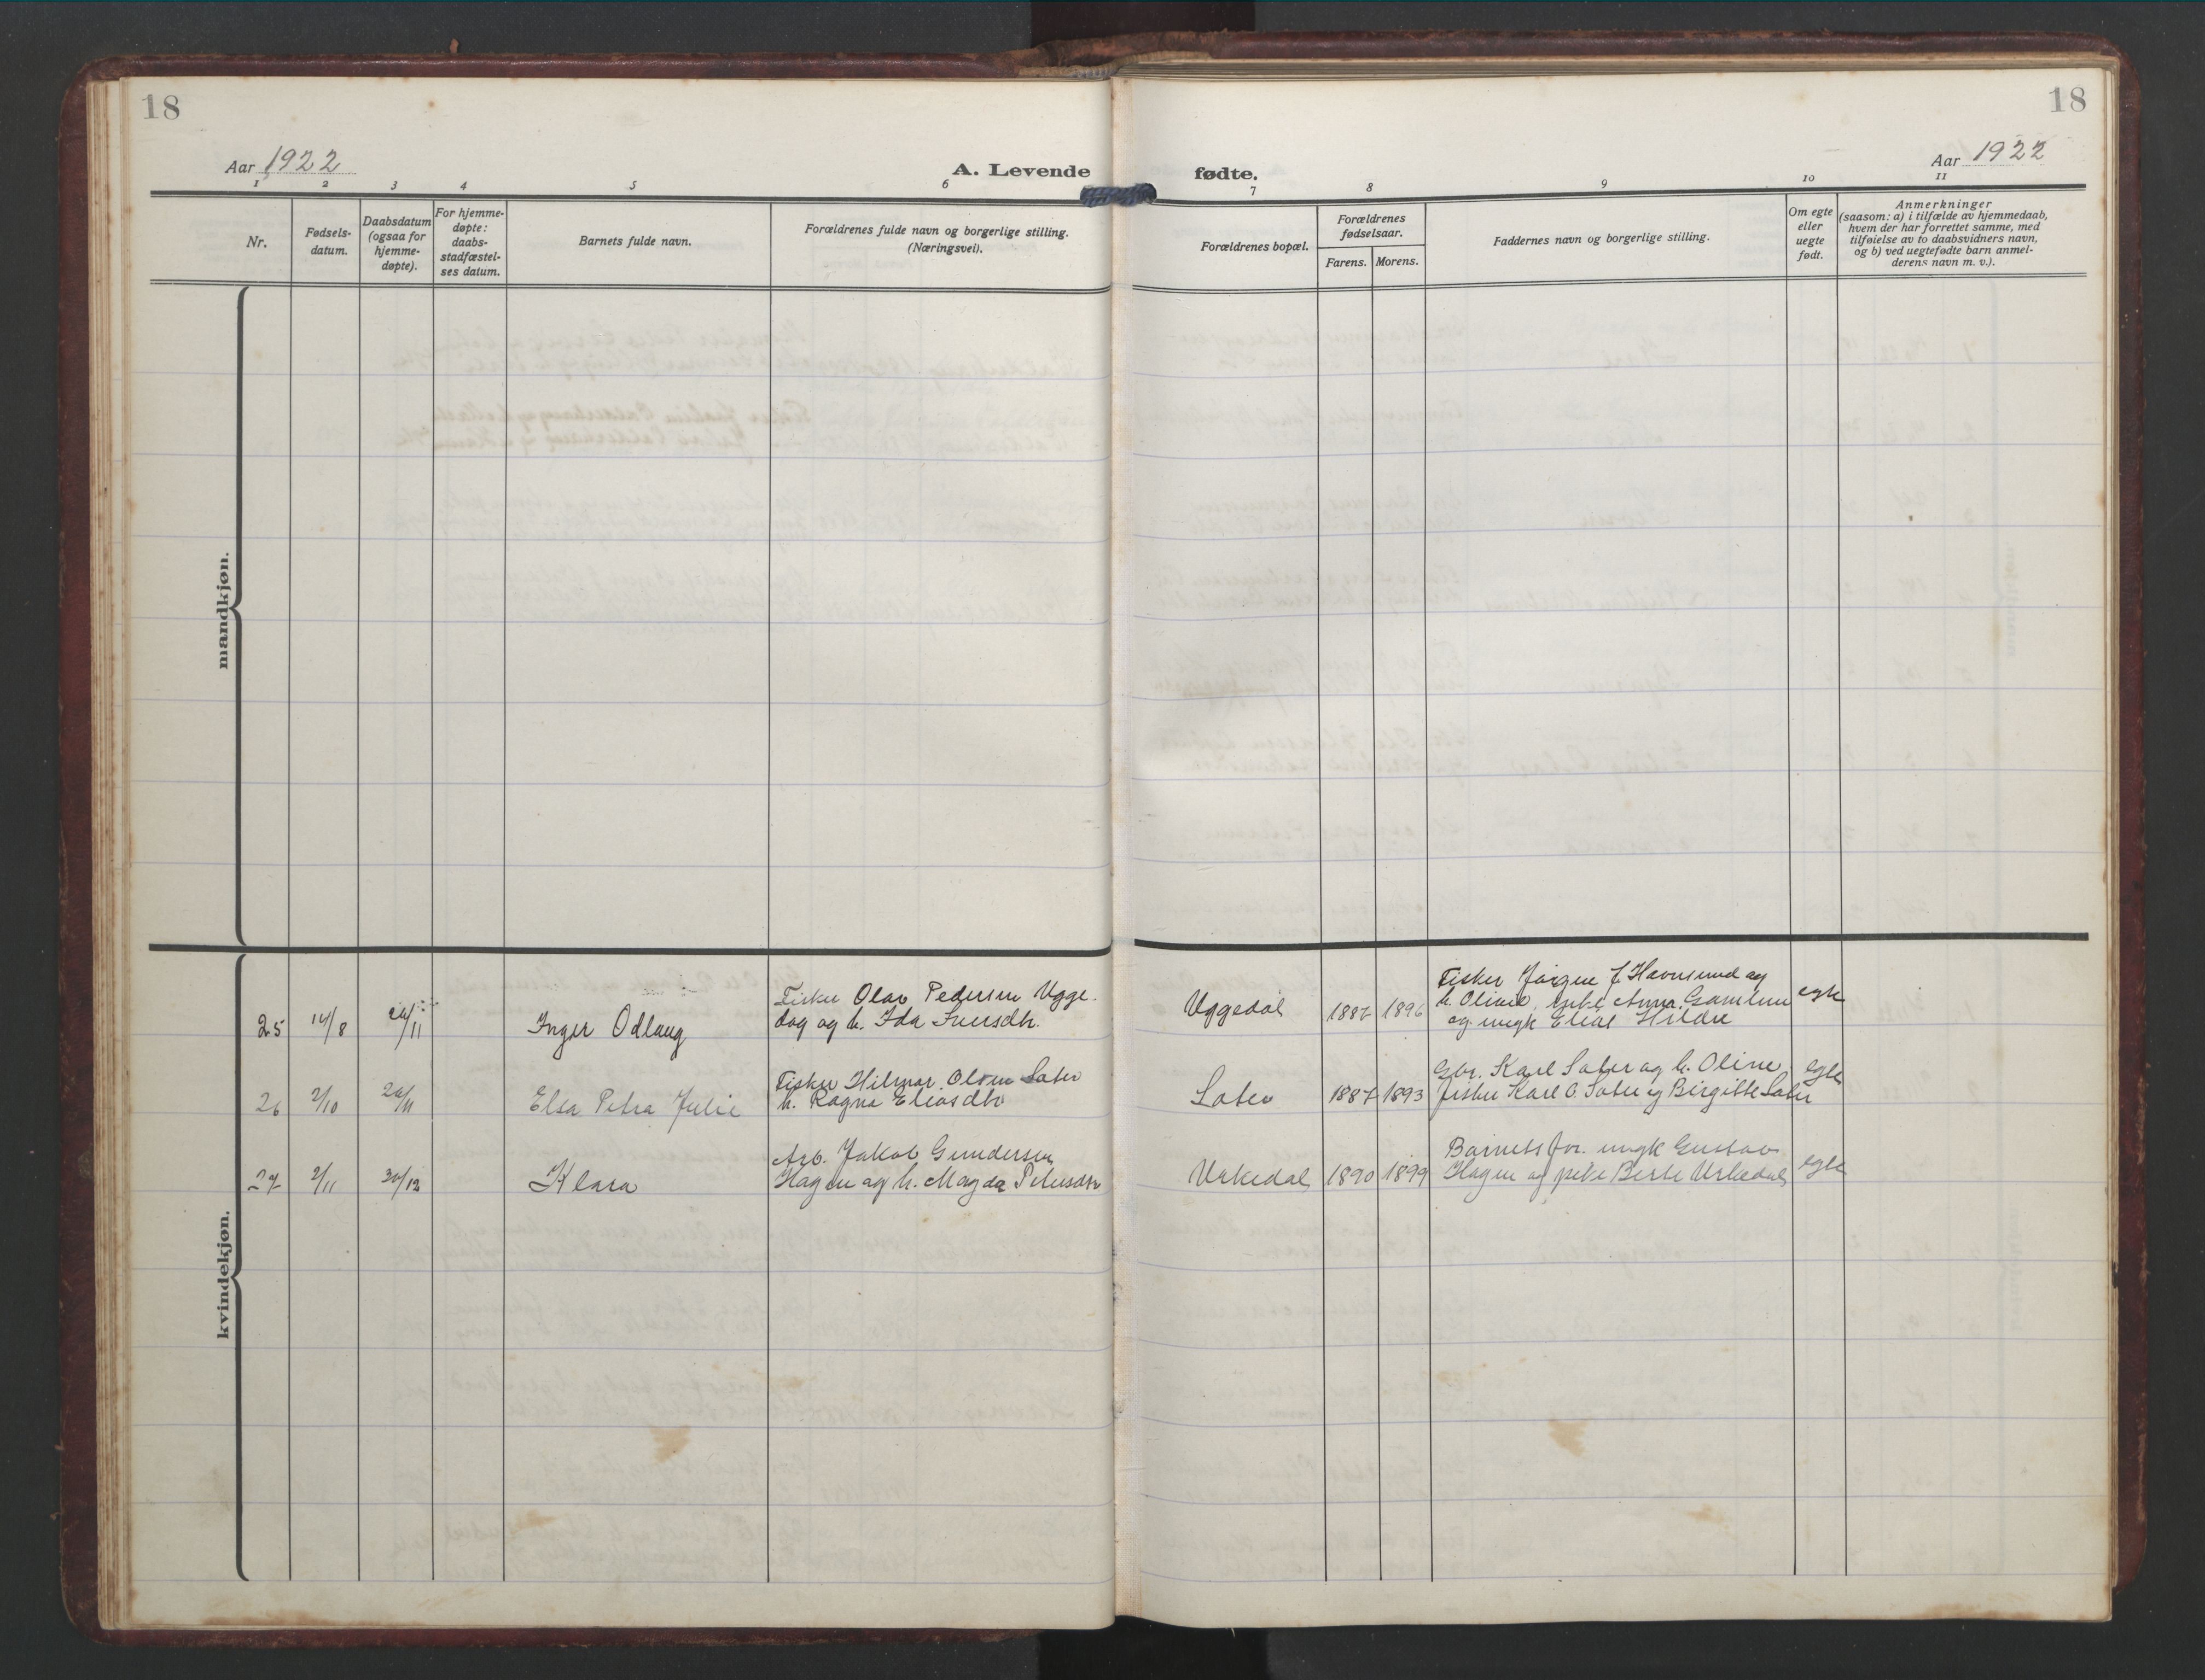 18
18
Aar 1922
A. Levende
fødte.
Aar 1922
1 2 3 4 5 6
7 8 9 10 11
Nr.
Fødsels-
datum.
Daabsdatum
(ogsaa for
hjemme-
døpte).
For hjemme-
døpte:
daabs-
stadfæstel-
ses datum.
Barnets fulde navn.
Forældrenes fulde navn og borgerlige stilling.
(Næringsvei).
Forældrenes bopæl.
Forældrenes
fødselsaar.
Farens. Morens.
Faddernes navn og borgerlige stilling.
Om egte
eller
uegte
født.
Anmerkninger
(saasom: a) i tilfælde av hjemmedaab,
hvem der har forrettet samme, med
tilføielse av to daabsvidners navn,
og b) ved uegtefødte barn anmel-
derens navn m. v.).
mandkjøn.
kvindekjøn.
25 14/8 26/11 Inger Odlaug
Fisker Olav Pedersen Ugge-
dag og h. Ida Iversdtr.
Uggedal 1887 1896
Fisker Jørgen J. Havnsund og
h. Oline, pike Anna Gamlem
og ungk Elias Hildre
egte
26 2/10 26/11 Elsa Petra Julie
Fisker Hilmar Olsen Sater
h. Ragna Eliasdtr
Sater 1887 1893
Gbr. Karl Sater og h. Oline,
fisker Karl O. Sater og Birgitte Sater
egte
27 2/11 30/12 Klara
Arb. Jakob Gundersen
Hagen og h. Magda Petersdtr
Urkedal 1890 1899
Barnets for. ungk Gustav
Hagen og pike Berte Urkedal
egte